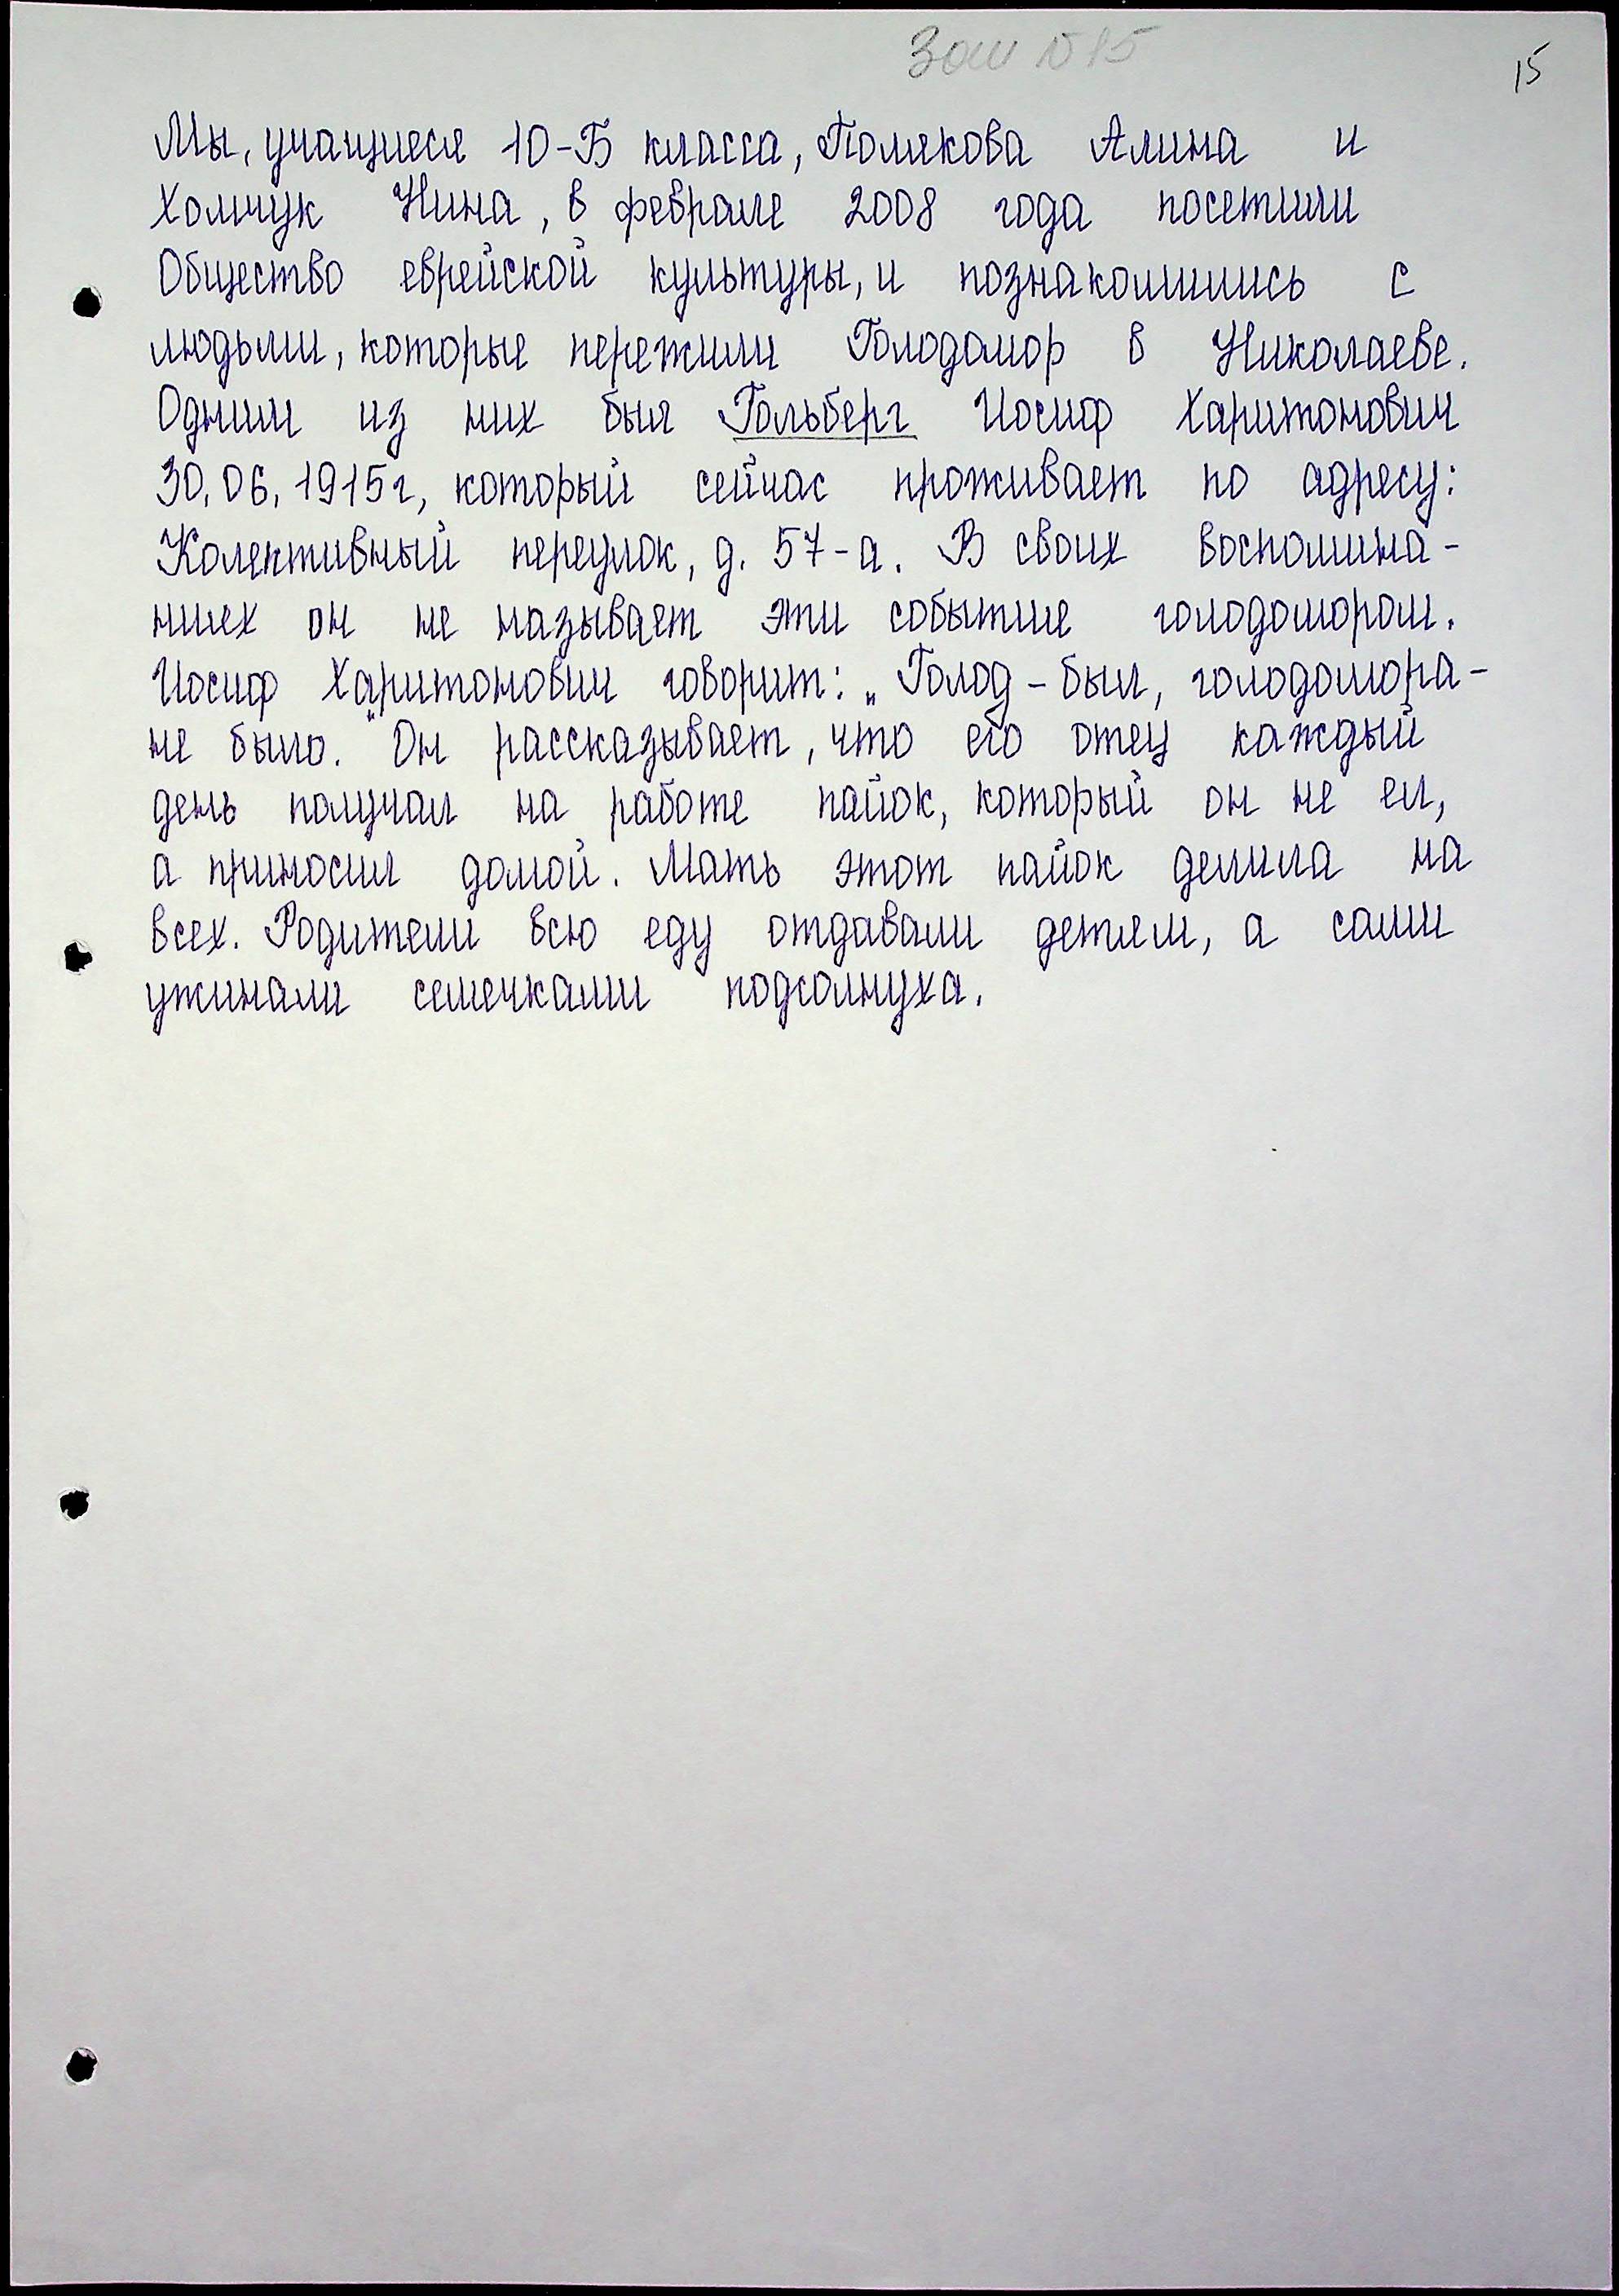 ЗОШ №15
15
Мы, учащиеся 10-Б класса, Полякова Алина и
Хомчук Нина, в феврале 2008 года посетили
Общество еврейской культуры, и познакомились с
людьми, которые пережили Голодомор в Николаеве.
Одним из них был Гольберг Иосиф Харитонович
30.06.1915г, который сейчас проживает по адресу:
Колективный переулок, д. 57-а. В своих воспомина-
ниях он не называет эти событие голодомором.
Иосиф Харитонович говорит: „Голод - был, голодомора -
не было." Он рассказывает, что его отец каждый
день получал на работе пайок, который он не ел,
а приносил домой. Мать этот пайок делила на
всех. Родители всю еду отдавали детям, а сами
ужинали семечками подсолнуха.